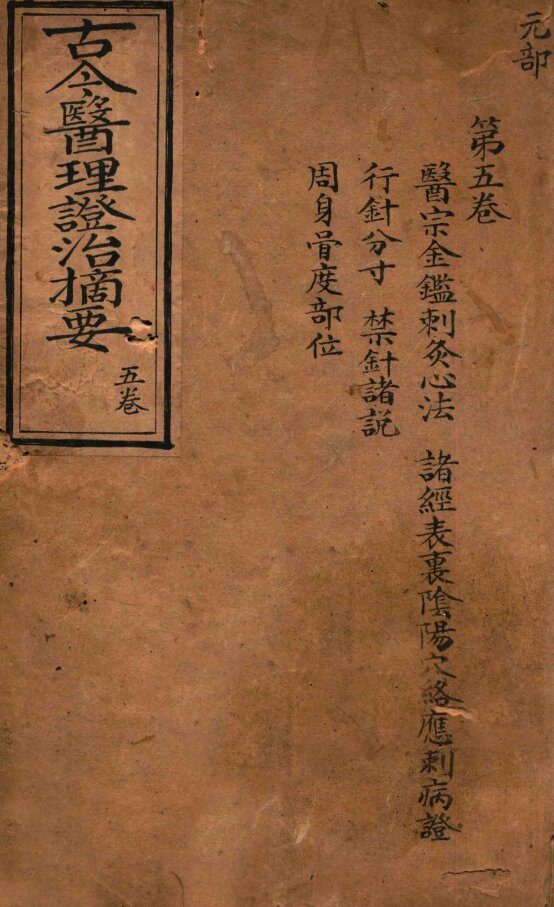 元部
第五卷
醫宗金鑑刺灸心法　諸經表裏陰陽穴絡應刺病證
行針分寸　禁針諸説
周身骨度部位
古今醫理證治摘要
五卷